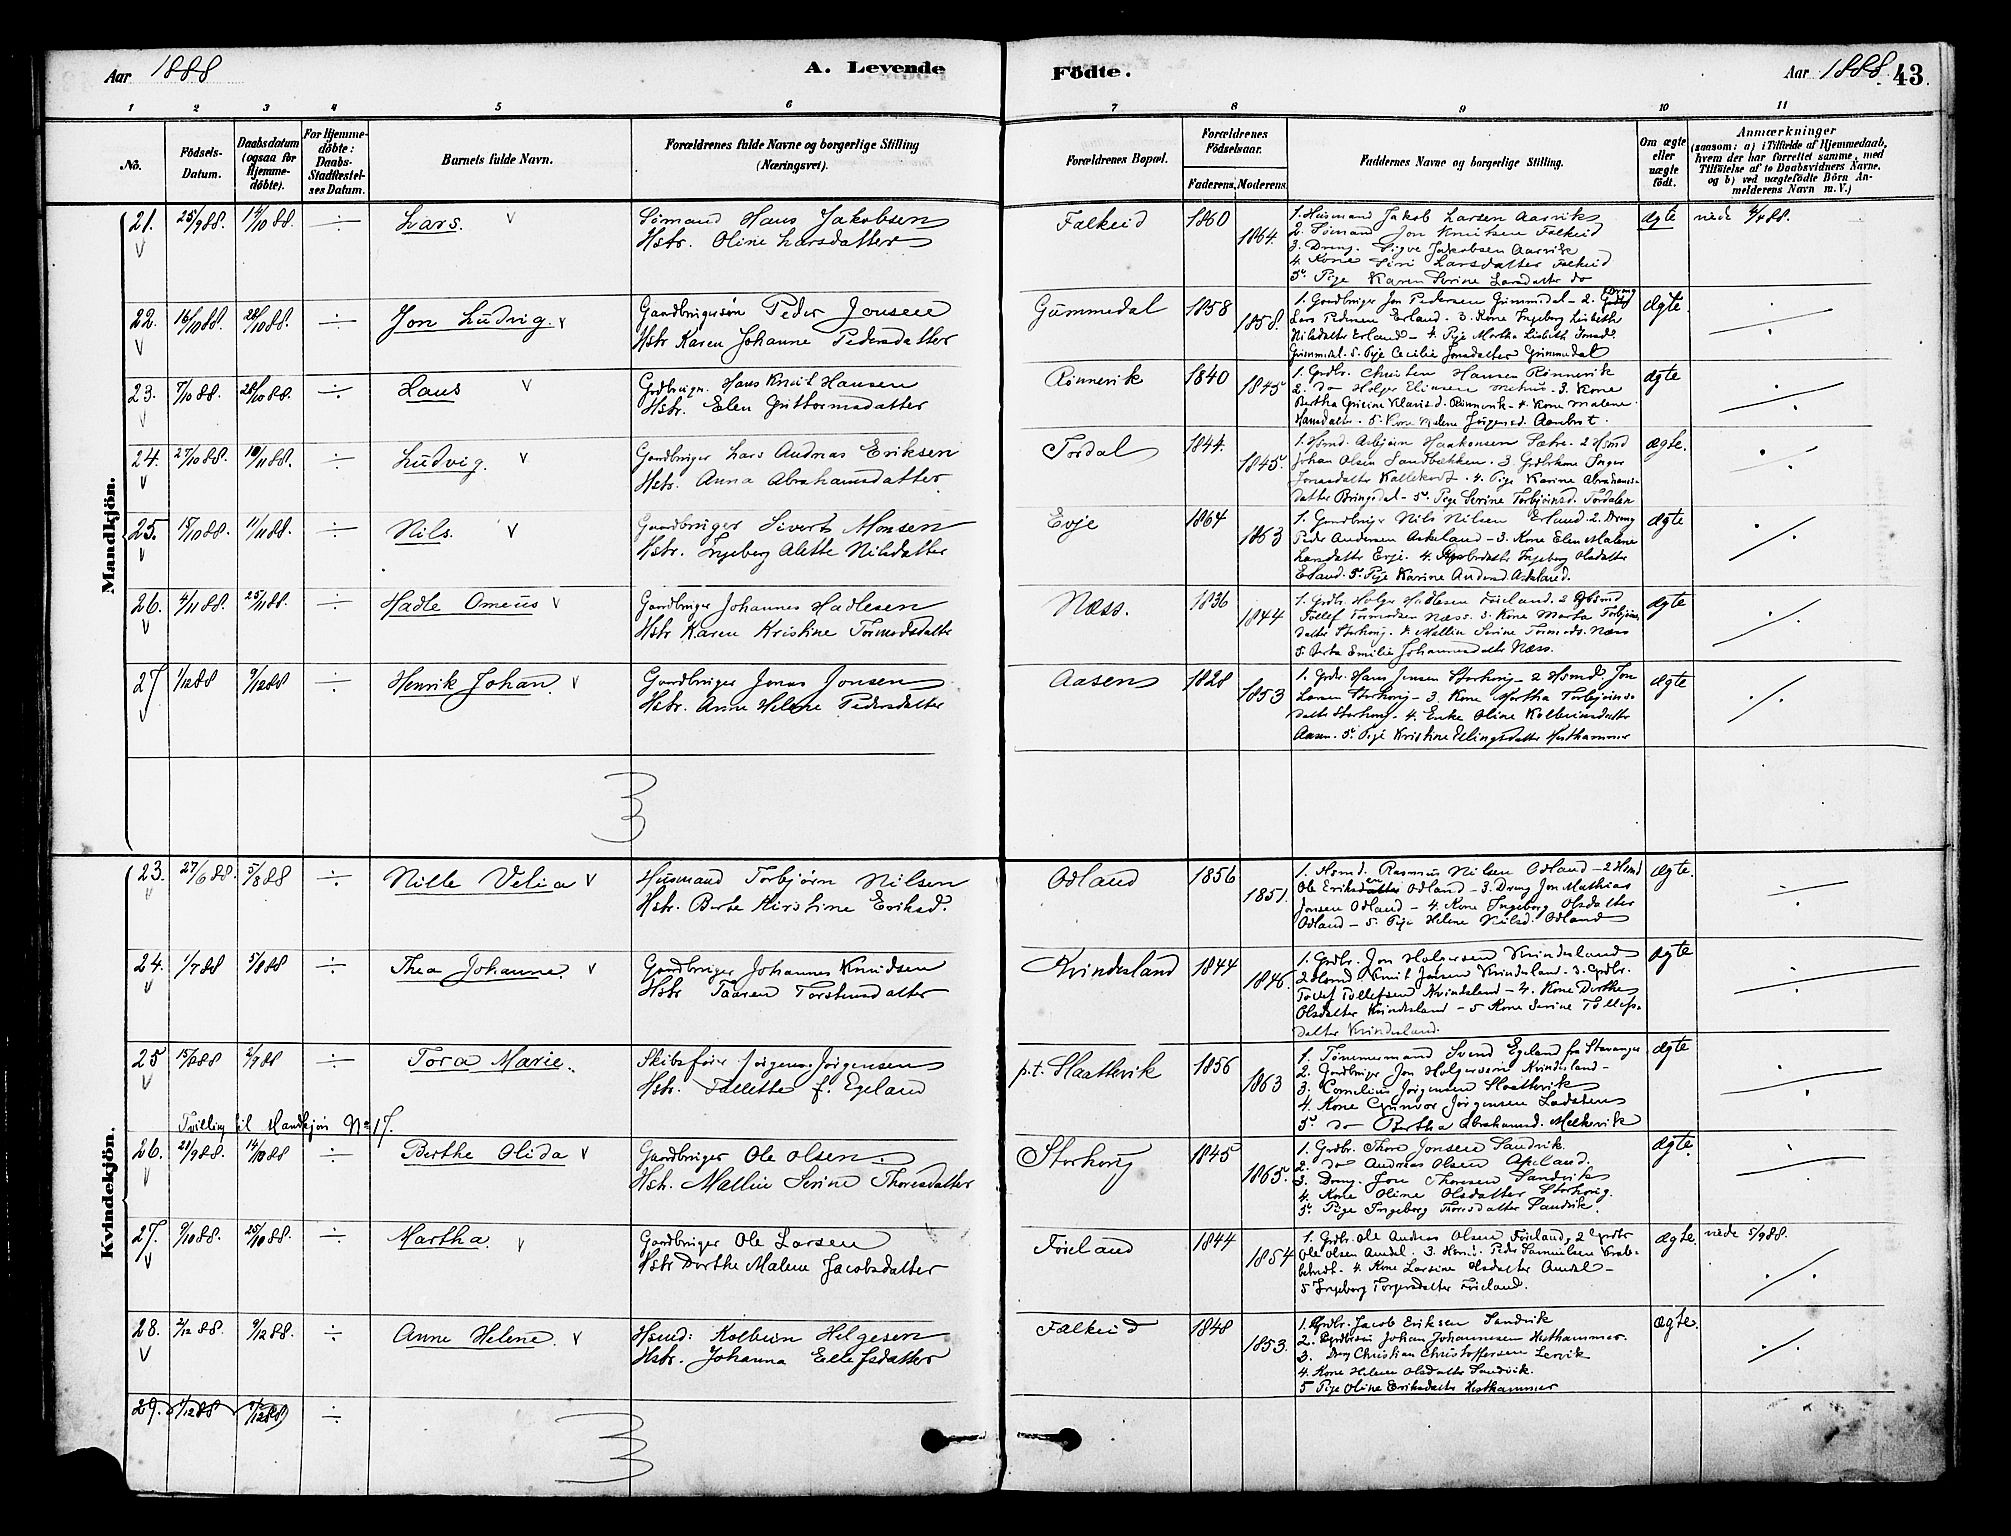 Aar 1888
A. Levende Födte.
Aar 1888 43.
1 2 3 4 5 6 7 8 9 10 11
No. Födsels-Datum. Daabsdatum (ogsaa for Hjemme-döbte). For Hjemme-döbte: Daabs-Stadfæstel-ses Datum. Barnets fulde Navn. Forældrenes fulde Navne og borgerlige Stilling (Næringsvei). Forældrenes Bopæl. Forældrenes Födselsaar. Faderens. Moderens. Faddernes Navne og borgerlige Stilling. Om ægte eller uægte födt. Anmærkninger (saasom: a) i Tilfælde af Hjemmedaab, hvem der har forrettet samme, med Tilföielse af to Daabsvidners Navne, og b) ved uægtefödte Börn An-melderens Navn m. V.)
Mandkjön.
21. 25/9 88. 14/10 88. ÷ Lars. V Sømand Hans Jakobsen
Hstr. Oline Larsdatter
Falkeid 1860 1864.
1. Husmand Jakob Larsen Aarvik
2. Sømand Jon Knutsen Falkeid
3. Dreng. Sigve Jakobsen Aarvik
4. Kone Siri Larsdatter Falkeid
5. Pige Karen Serine Larsdatter do
ægte
22. 16/10 88. 28/10 88. ÷ Jon Ludvig. V Gaardbrugersøn Peder Jonsen
Hstr Karen Johanne Pedersdatter
Gummedal 1858 1858.
1. Gaardbruger Jon Pedersen Gummedal - 2. Dreng
Lars Pedersen Erland - 3. Kone Ingeborg Lisbeth
Nilsdatter Erland - 4. Pige Martha Lisbeth Jonsd.
Gummedal. 5. Pige Cecilie Jonsdatter Gummedal
ægte.
23. 7/10 88. 28/10 88. ÷ Hans V Grdbruger. Hans Knut Hansen
Hstr. Elen Guttormsdatter
Rønnevik 1840 1845
1. Grdbr. Christen Hansen Rønnevik
2. do Holger Eliasen - 3. Kone
Rønnevik - 4. Kone Malene
Hansdatter. 5. Kone Malene Jørgensd.
ægte
24. 27/10 88. 10/11 88. ÷ Ludvig. V Gaardbruger Lars Andreas Eriksen
Hstr. Anna Abrahamsdatter
Tordal 1844. 1845.
1. Hsmd. Asbjørn Haakonsen Sætre. 2 Hsmd
Johan Olsen Sandbækken. 3 Grdbrkone Inger
Jonasdatter 4. Pige Karine Abrahams-
datter Bringedal - 5. Pige Serine Torbjørnsd. Tordalen
ægte.
25. 18/10 88. 11/11 88. ÷ Nils. V Gaardbruger Sivert Monsen
Hstr. Ingeborg Alette Nilsdatter
Evje 1864 1863
1. Gaardbruger Nils Nilsen Erland. 2. Dreng
Peder Andersen Askeland - 3. Kone Elen Malene
Larsdatter Evje. 4. Ingeborg Olsdatter
Erland. 5. Pige Karine Andersd. Askeland.
ægte
26. 4/11 88. 25/11 88. ÷ Hadle Omeus V Gaardbruger Johannes Hadlesen
Hstr Karen Kristine Tormodsdatter
Næss. 1836 1844
1. Grdbr. Holge Hadlesen Føieland. 2
Tollef Tormodsen Næss. 3. Kone Marta Torbjørns
datter Storhoug. 4. Mallin Serine Tormods. Næss
5. Berta Emilie Johannesdatter Næss.
ægte
27 1/12 88 9/12 88 ÷ Henrik Johan. V Gaardbruger Jonas Jonsen
Hstr. Anne Helene Pedersdatter
Aasen 1828 1853
1. Grdbr. Hans Jensen Storhoug - 2 Hsmd. Jon
Larsen Storhoug - 3. Kone Martha Torbjørns-
datter Storhoug - 4. Enke Oline Kolbeinsdatter
Aasen. 5. Pige Kristine Ellingsdatter Hesthammer
ægte
Kvindekjön.
23. 27/6 88. 5/8 88 ÷ Nille Velia V Husmand Torbjørn Nilsen
Hstr. Berte Kirstine Eriksd.
Odland 1856 1851.
1. Hsmd. Rasmus Nilsen Odland - 2 Hsmd
Ole Eriksen Odland - 3. Dreng Jon Mathias
Jonsen Odland - 4. Kone Ingeborg Olsdatter
Odland - 5. Pige Helene Nilsd. Odland
ægte.
24. 1/7 88 5/8 88 ÷ Thea Johanne. V Gaardbruger Johannes Knudsen
Hstr Taaren Torstensdatter
Kvindesland 1844 1846.
1. Grdbr. Jon Holgersen Kvindesland
2 Hsmd Knut Jonsen Kvindesland. 3. Grdbr.
Tollef Tollefsen Kvindesland - 4. Kone Dorthe
Olsdatter Kvindesland - 5 Kone Serine Tollefs-
datter Kvindesland.
ægte
25 15/8 88 2/9 88 ÷ Tora Marie. Skibsfører Jørgen Jørgensen
Hstr. Tallette f. Egeland
p.t. Slaattevik 1856 1863
1. Tømmermand Svend Egeland fra Stavanger
2. Gaardbruger Jon Holgersen Kvindesland -
3. Cornelius Jørgensen Slaattevik
4. Kone Gunvor Jørgensen Ladstein
5. do Bertha Abrahamsd. Melkevik
ægte
Tvilling til Mandkjøn No 17.
26. 21/9 88. 14/10 88 ÷ Berthe Olida V Gaardbruger Ole Olsen.
Hstr. Mallin Serine Thoresdatter
Storhoug 1845 1865.
1. Grdbr. Thore Jonsen Sandvik
2. do Andreas Olsen Apeland.
3. Dreng. Jon Thoresen Sandvik
4. Kone Oline Olsdatter Storhoug.
5. Pige Ingeborg Thoresdatter Sandvik.
ægte.
27. 9/10 88. 25/10 88. ÷ Martha. V Gaardbruger Ole Larsen
Hstr Dorthe Malene Jacobsdatter
Føieland 1844 1854
1. Grdbr. Ole Andreas Olsen Føieland, 2 Grdbr
Ole Olsen Amdal. 3. Hsmd. Peder Samuelsen
4. Kone Larsine Olsdatter Amdal -
5 Ingeborg Torgersdatter Føieland.
ægte.
28. 2/12 88. 9/12 88. ÷ Anne Helene. V Hsmd: Kolbein Helgesen
Hstr. Johanna Ellefsdatter
Falkeid 1848 1853.
1. Grdbr. Jacob Eriksen Sandvik
2. Johan Johannesen Hesthammer.
3. Dreng Christian Christoffersen Lervik
4. Kone Helene Olsdatter Sandvik.
5 Pige Oline Eriksdatter Hesthammer
ægte.
29. 1/12 88 9/12 88 ÷